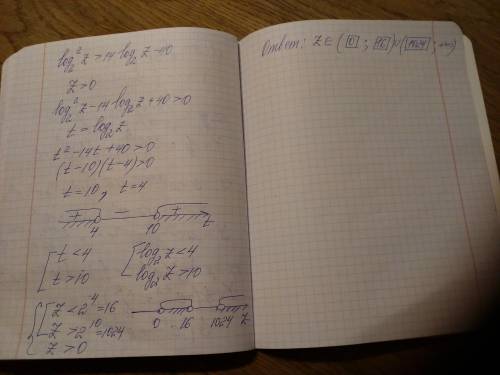 log₂²z > 14 log₂z - 40
z > 0
log₂²z - 14 log₂z + 40 > 0
t = log₂z
t² - 14t + 40 > 0
(t - 10)(t - 4) > 0
t = 10, t = 4
+ − +
4 10 t
[ t < 4 [ log₂z < 4
t > 10 log₂z > 10
{ [ z < 2⁴ = 16
z > 2¹⁰ = 1024
z > 0
0 16 1024 z
Ответ: z ∈ (0; 16) ∪ (1024; +∞)